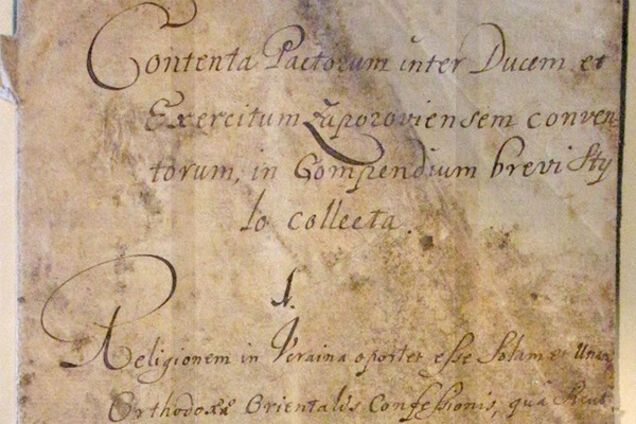 Contenta Pactorum inter Ducem et
Exercitum Zaporoviensem conven-
torum, in Compendium brevi Sty
lo collecta.
1.
Religionem in Ucraina oportet esse Solam et Unam
Orthodoxæ Orientalis Confessionis, quâ Sicut